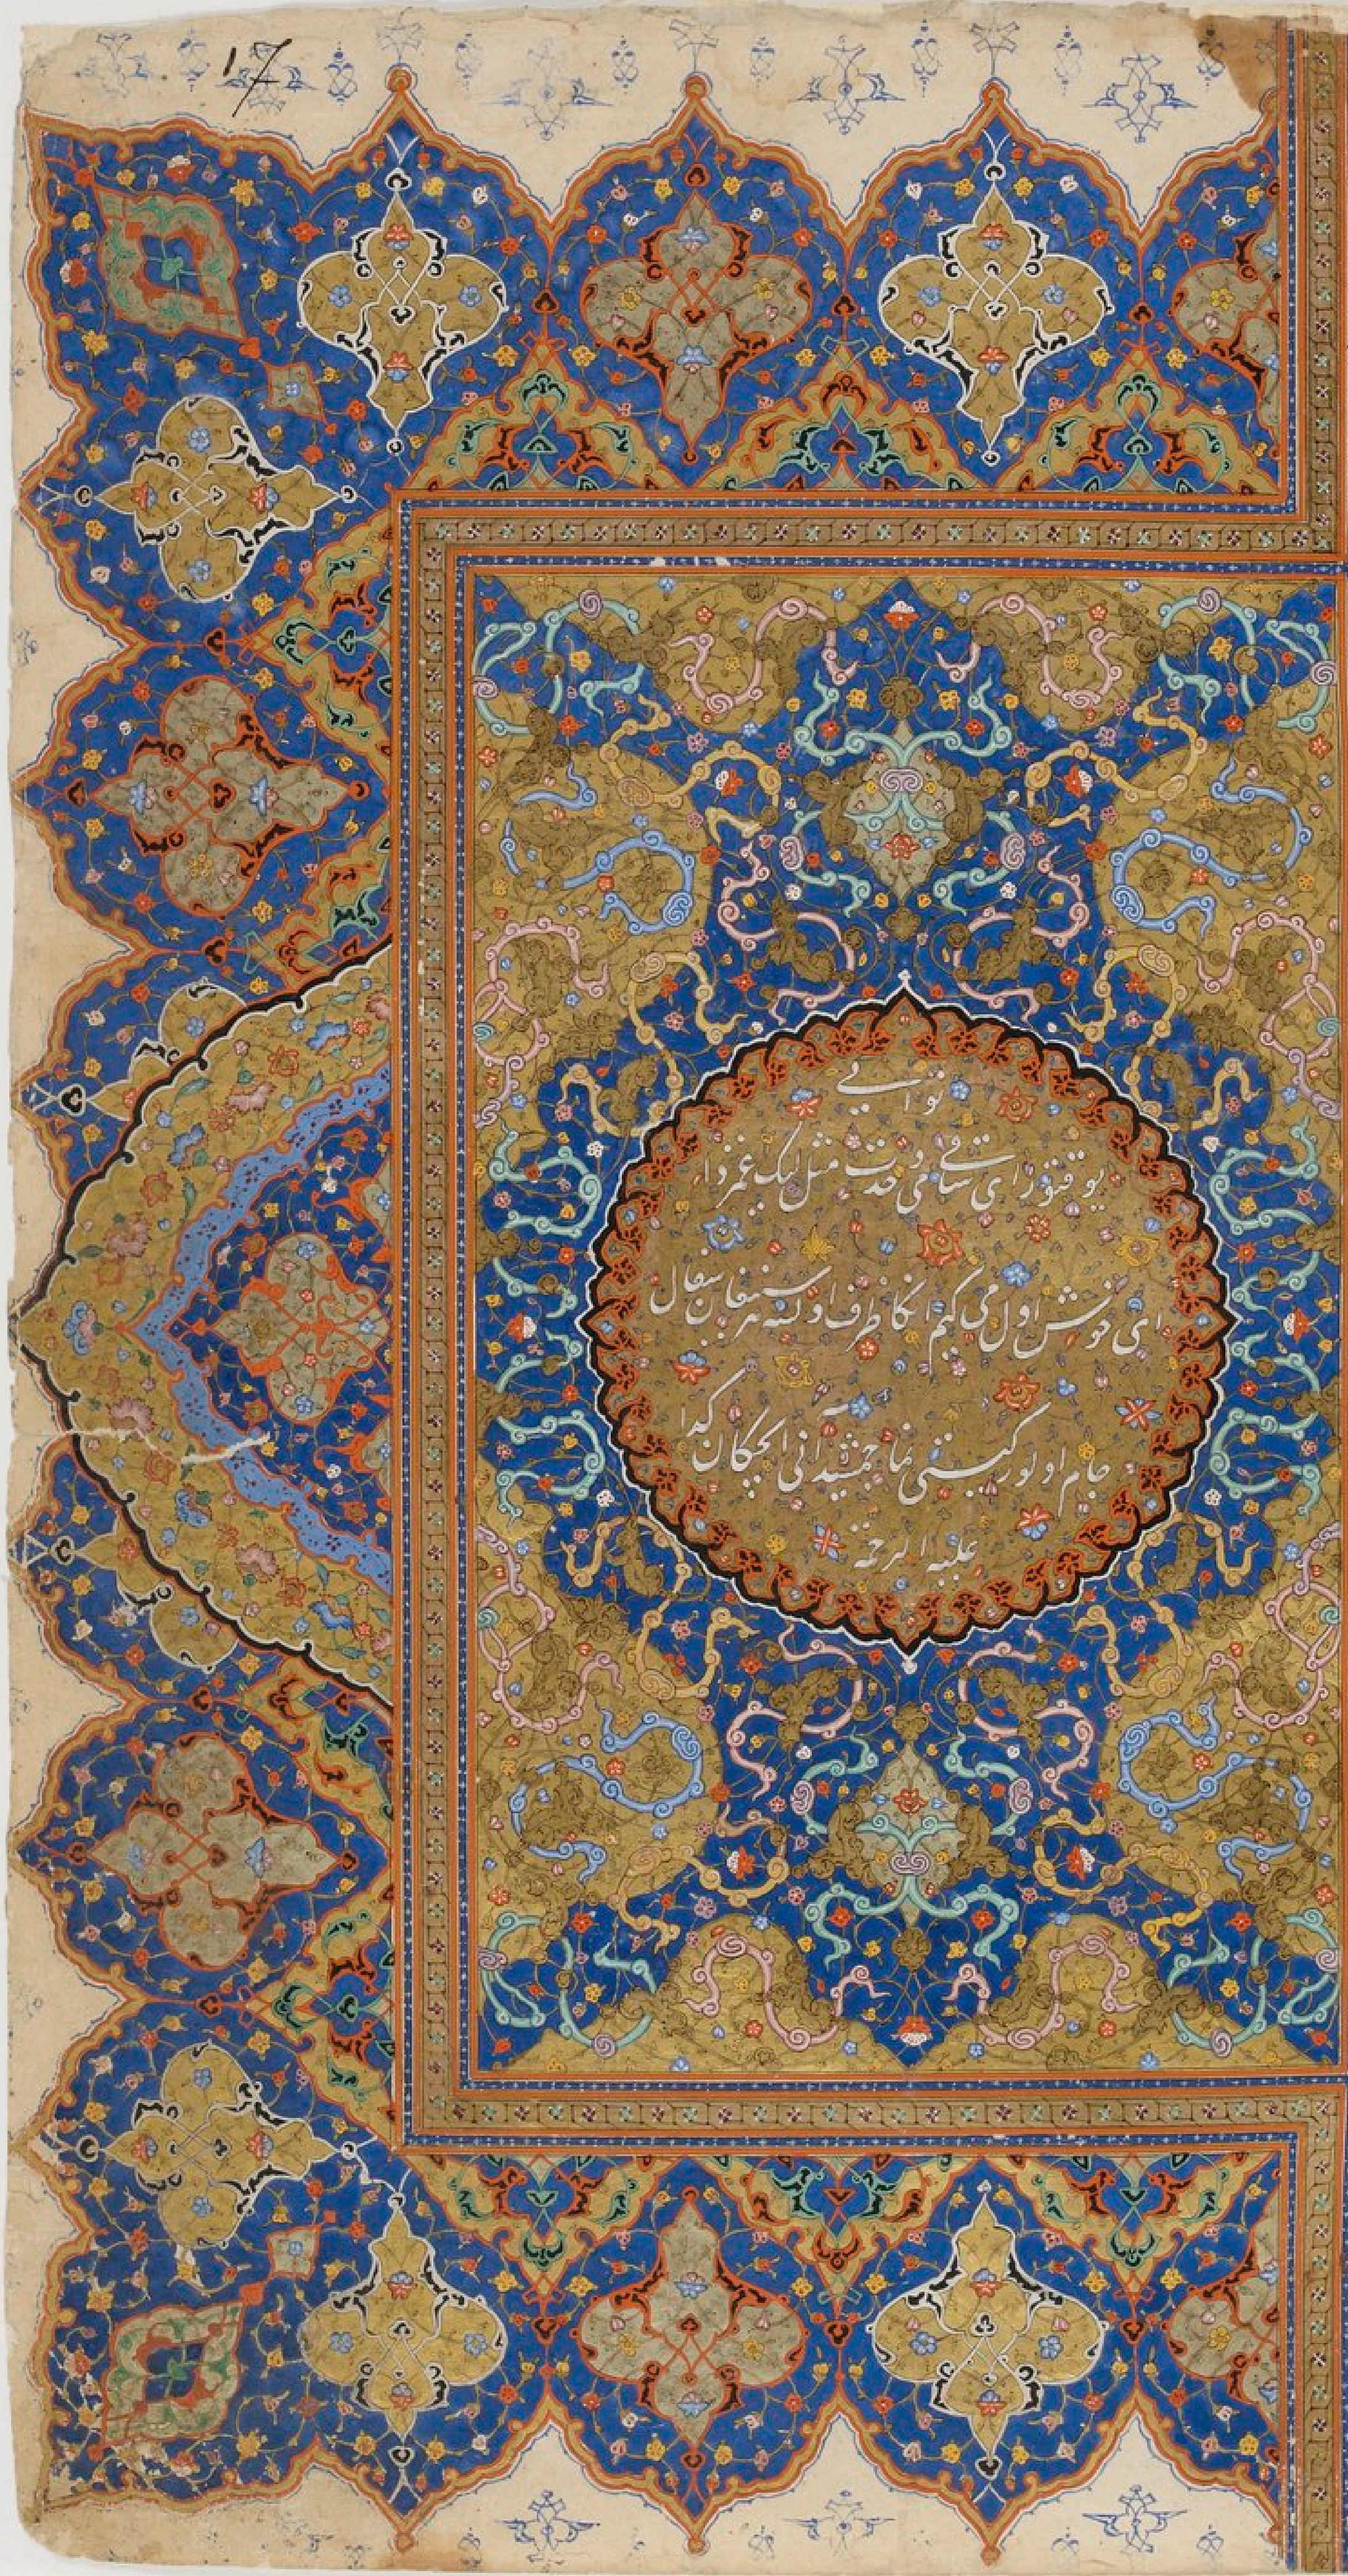 17
نوائی
یوقتور ای ساقی می وحدت مثل لیک غمزدا
ای خوش اول می کیم انکا ظرف اولسه بر سینغان سفال
جام اولور کیتی نما جمشید انی ایچکان کدا
علیه الرحمة